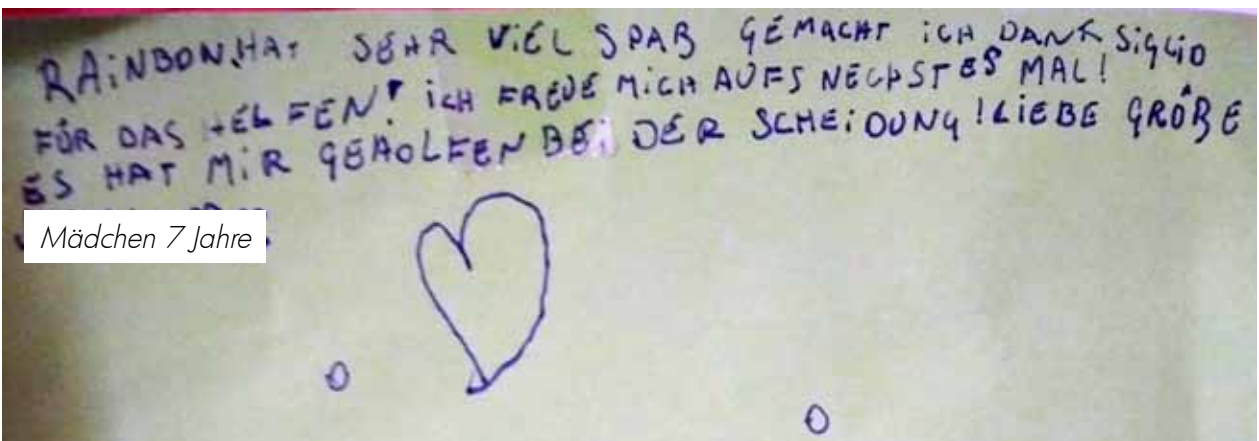 RAiNBOW HAT SEHR ViEL SPAß GEMACHT iCH DANK SiGLiD
FÜR DAS HELFEN! iCH FREUE MiCH AUFS NECHSTES MAL!
ES HAT MiR GEHOLFEN BEi DER SCHEiDUNG! LiEBE GRÖßE
Mädchen 7 Jahre